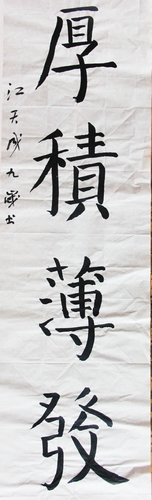 厚積薄發
江天成九歲书